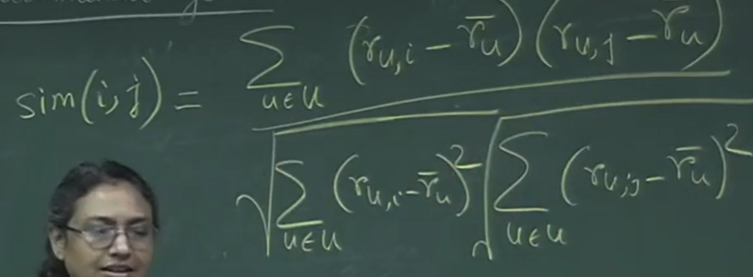 sim(i,j) = \frac{\sum_{u \in U} (r_{u,i} - \bar{r_u}) (r_{u,j} - \bar{r_u})}{\sqrt{\sum_{u \in U} (r_{u,i} - \bar{r_u})^2} \sqrt{\sum_{u \in U} (r_{u,j} - \bar{r_u})^2}}